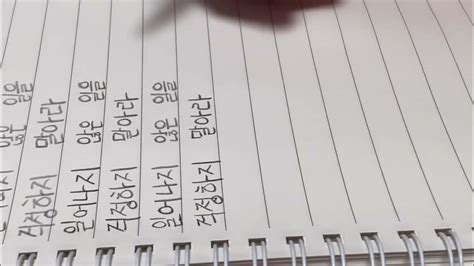 않은 일을
걱정하지 말아라
일어나지 않은 일을
걱정하지 말아라
일어나지 않은 일을
걱정하지 말아라